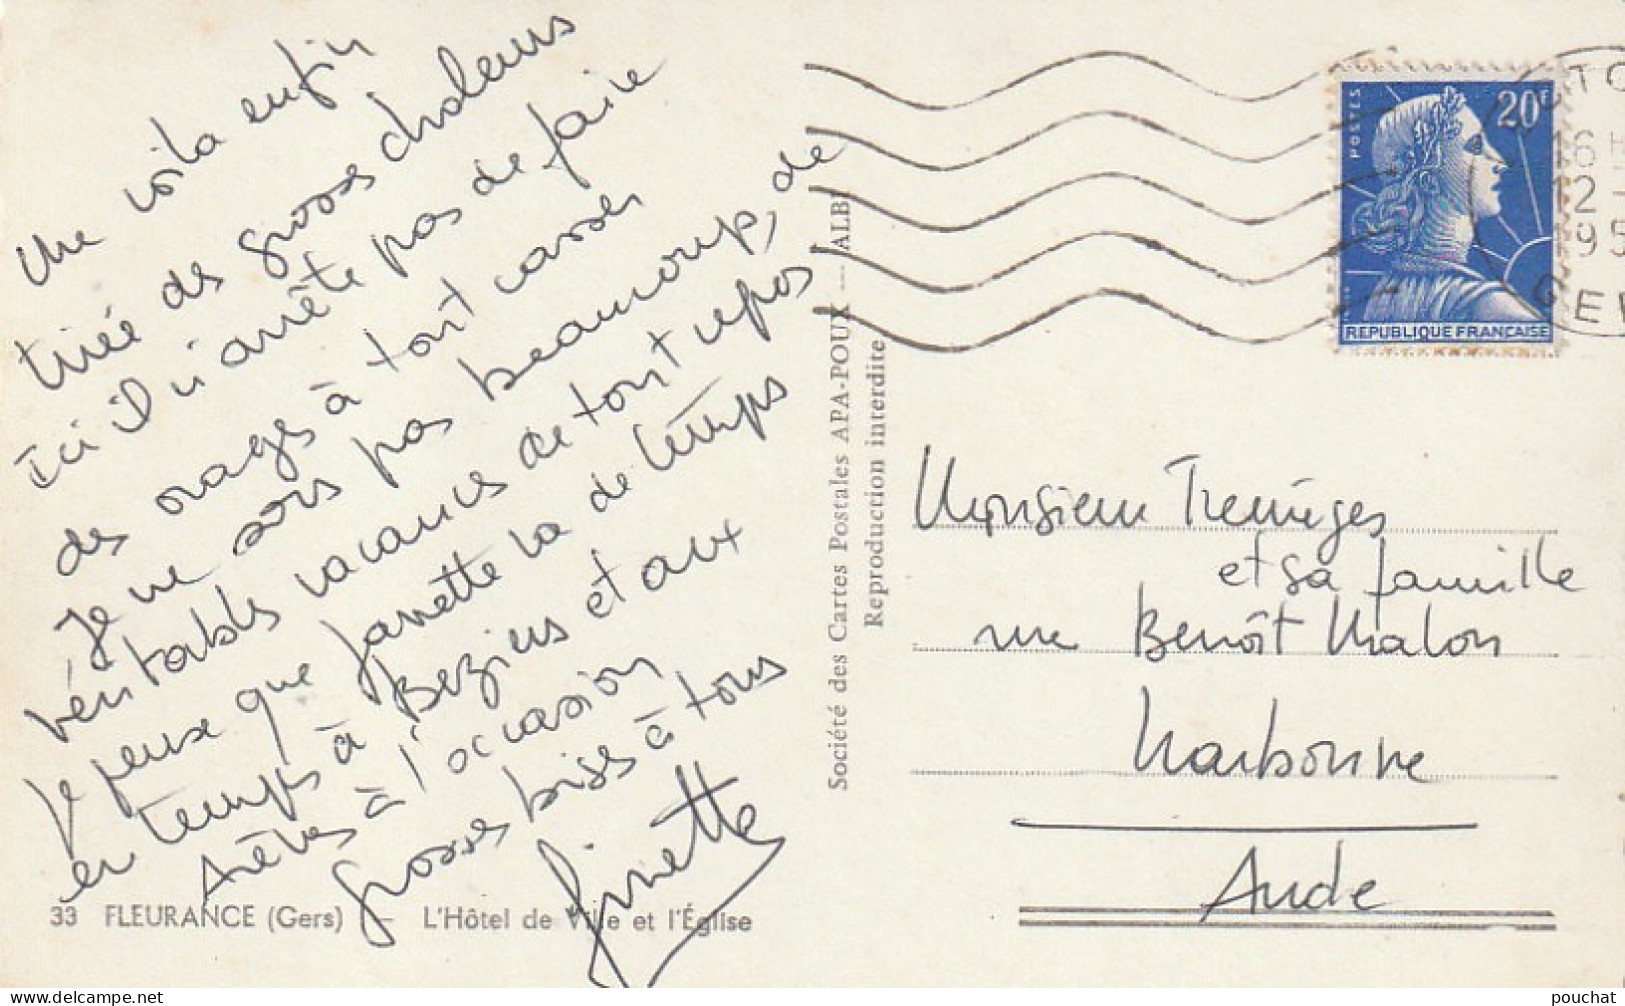 Me voila enfin
tirée des grosses chaleurs
Ici il n'arrête pas de faire
des orages à tout casser
Je ne sors pas beaucoup, de
véritables vacances de tout repos
Je pense que Jannette va de temps
en temps à Beziers et aux
à l'occasion
grosses bises à tous
Ginette
33 FLEURANCE (Gers) — L'Hôtel de Ville et l'Église
Société des Cartes Postales APA-POUX — ALBI
Reproduction interdite
POSTES
20F
REPUBLIQUE FRANÇAISE
Monsieur
et sa famille
rue Benoît Malon
Narbonne
Aude
pouchat